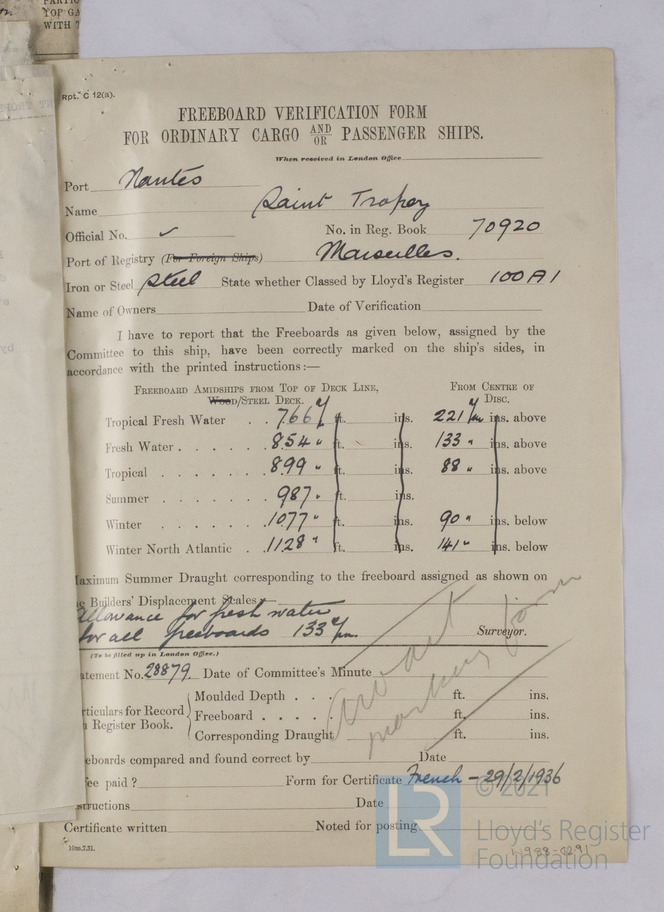 TOP GA
WITH
Rpt. C 12(a).
FREEBOARD VERIFICATION FORM
FOR ORDINARY CARGO AND/OR PASSENGER SHIPS.
When received in London Office
Port Nantes
Name Saint Tropez
Official No. ✓ No. in Reg. Book 70920
Port of Registry (For Foreign Ships) Marseilles.
Iron or Steel Steel State whether Classed by Lloyd's Register 100A1
Name of Owners Date of Verification
I have to report that the Freeboards as given below, assigned by the
Committee to this ship, have been correctly marked on the ship's sides, in
accordance with the printed instructions:—
Freeboard Amidships from Top of Deck Line, From Centre of
Wood/Steel Deck. Disc.
Tropical Fresh Water . . 766 ft. ins. 221 ins. above
Fresh Water . . . . . . 854 " ft. ins. 133 " ins. above
Tropical . . . . . . . 899 " ft. ins. 88 " ins. above
Summer . . . . . . . 987 " ft. ins.
Winter . . . . . . . 1077 " ft. ins. 90 " ins. below
Winter North Atlantic . . 1128 " ft. ins. 141 " ins. below
aximum Summer Draught corresponding to the freeboard assigned as shown on
Builders' Displacement Scales—
Allowance for fresh water
for all freeboards 133 m/m. Surveyor.
(To be filled up in London Office.)
atement No. 28879. Date of Committee's Minute
Moulded Depth . . . ft. ins.
rticulars for Record Freeboard . . . . ft. ins.
Register Book. Corresponding Draught ft. ins.
eeboards compared and found correct by Date
ee paid? Form for Certificate French — 29/2/1936
structions Date
Certificate written Noted for posting
10m.7,31.
© 2021
LR
Lloyd's Register
Foundation
W988-0291